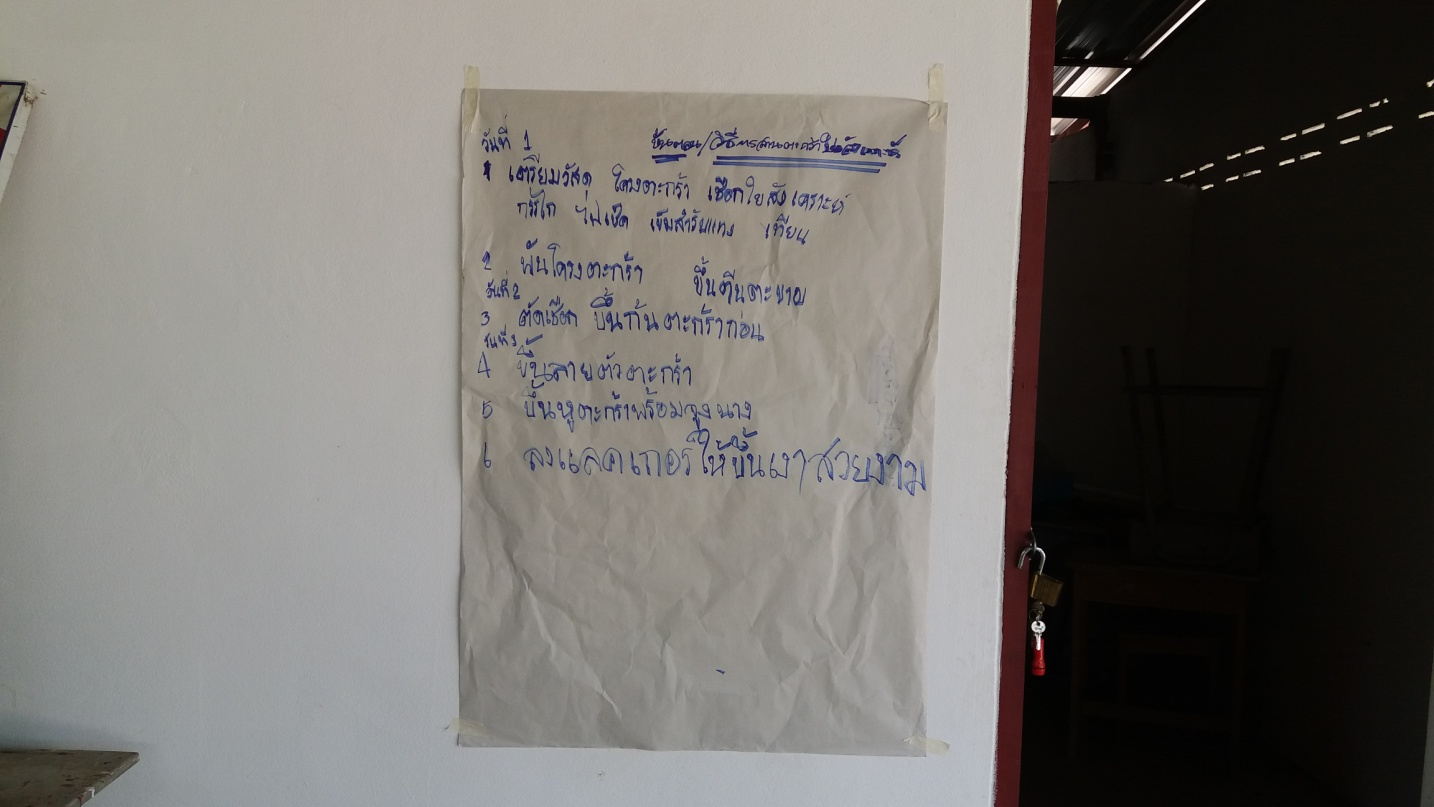 วันที่ 1 ขั้นตอน/วิธีการสานตะกร้าใยสังเคราะห์
1 เตรียมวัสดุ โครงตะกร้า เชือกใยสังเคราะห์
กรรไก ไฟเช็ค เข็มสำรับแทง เทียน
2 พันโครงตะกร้า ขึ้นตีนตะขาบ
วันที่ 2
3 ตัดเชือก ขึ้นก้นตะกร้าก่อน
วันที่ 3
4 ขึ้นลายตัวตะกร้า
5 ขึ้นหูตะกร้าพร้อมจูงนาง
6 ลงแลคเกอร์ให้ขึ้นเงาสวยงาม